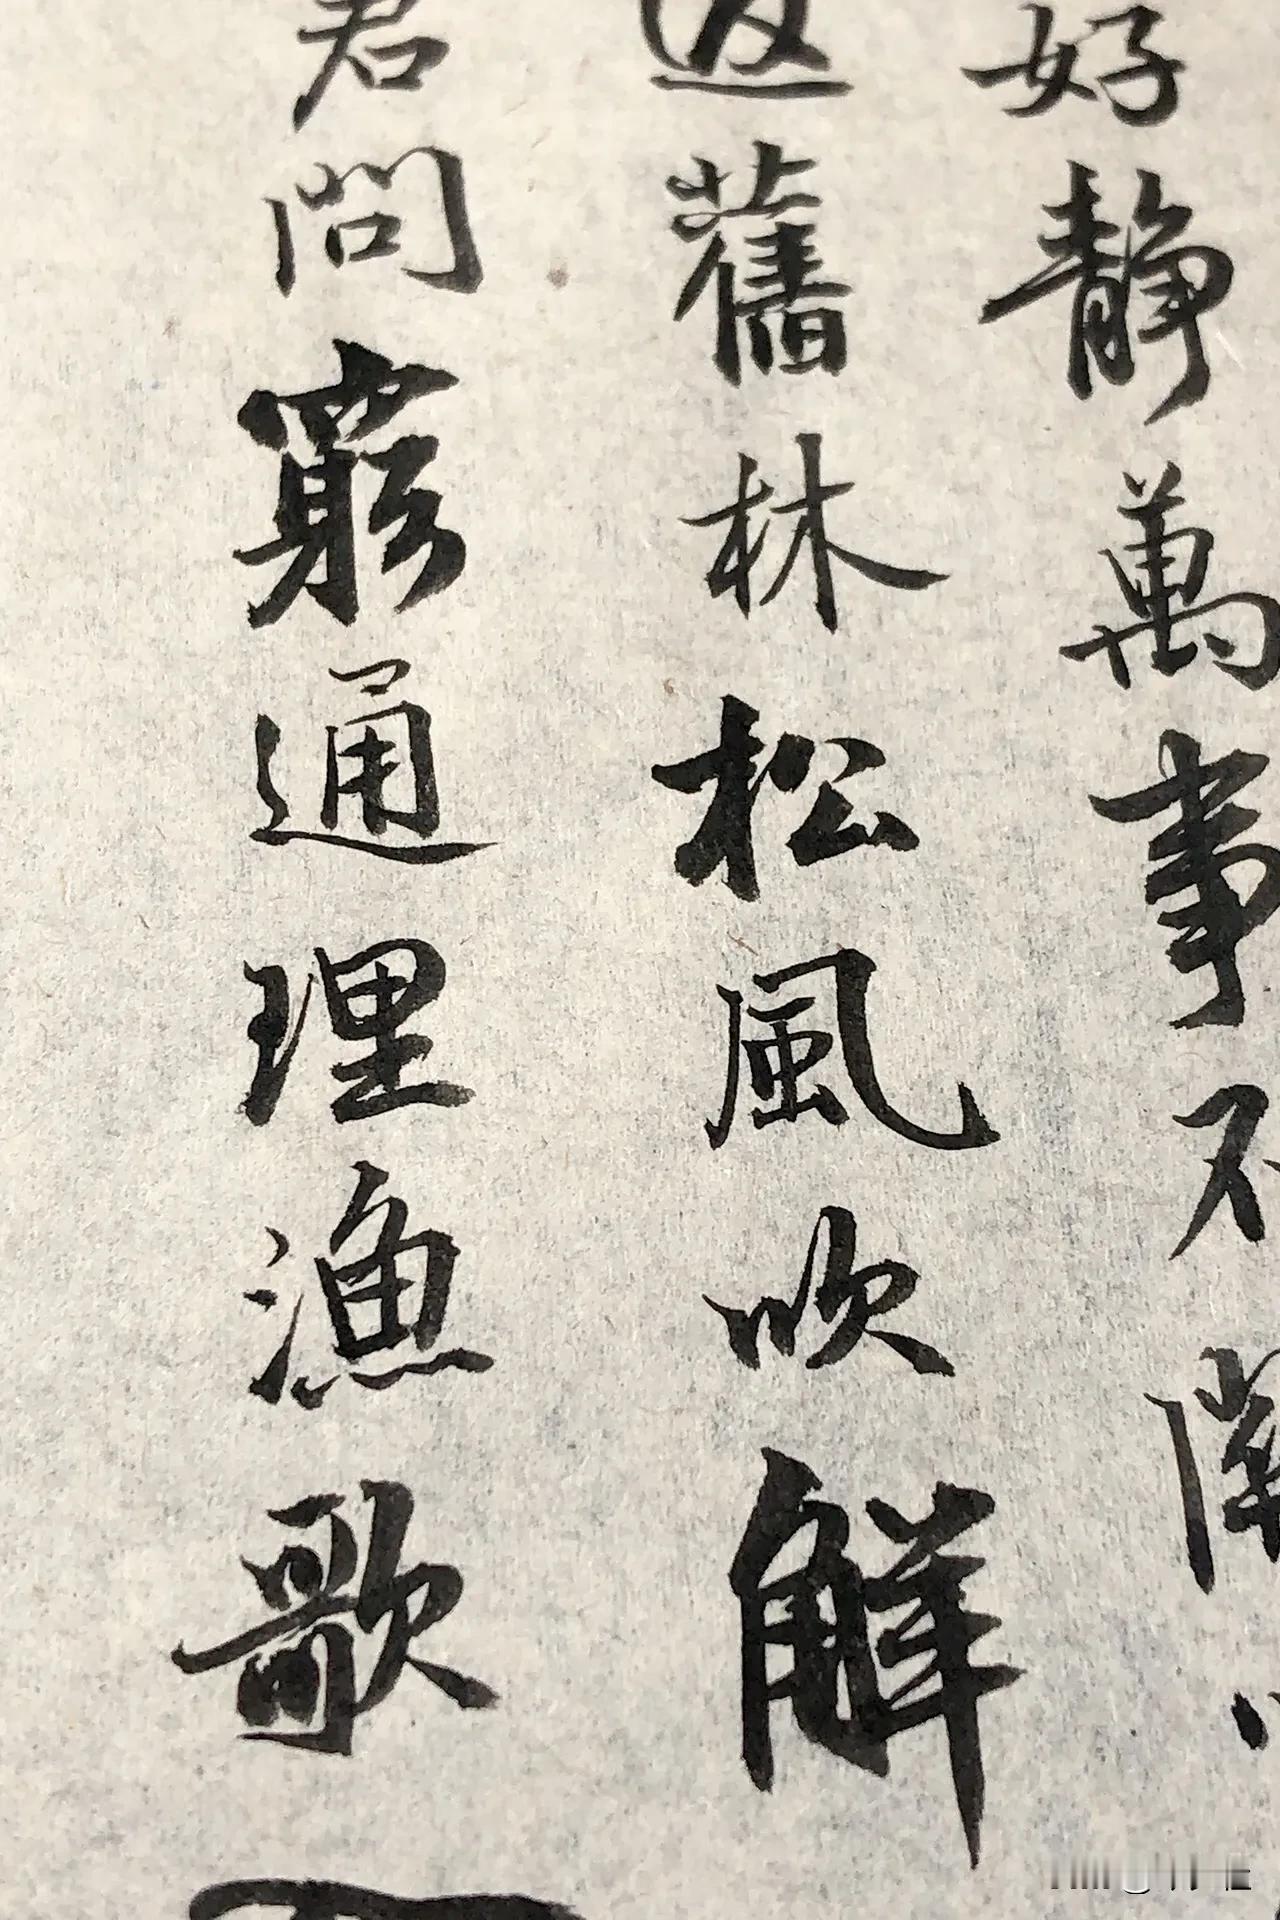 好静萬事不關心
返舊林松風吹解
君問窮通理漁歌